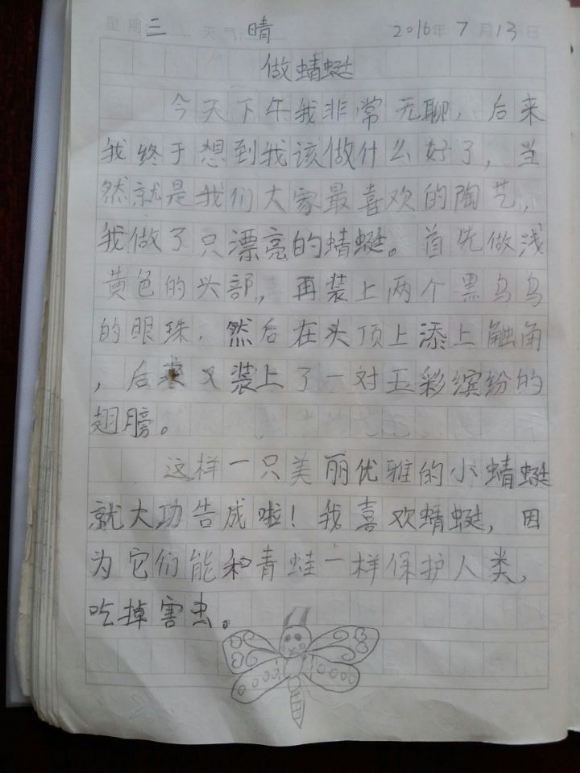 星期三 天气 晴 2016年7月13日
做蜻蜓
今天下午我非常无聊，后来
我终于想到我该做什么好了，当
然就是我们大家最喜欢的陶艺，
我做了只漂亮的蜻蜓。首先做浅
黄色的头部，再装上两个黑乌乌
的眼珠，然后在头顶上添上触角
，后来又装上了一对五彩缤纷的
翅膀。
这样一只美丽优雅的小蜻蜓
就大功告成啦！我喜欢蜻蜓，因
为它们能和青蛙一样保护人类，
吃掉害虫。